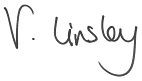 V. Linsley